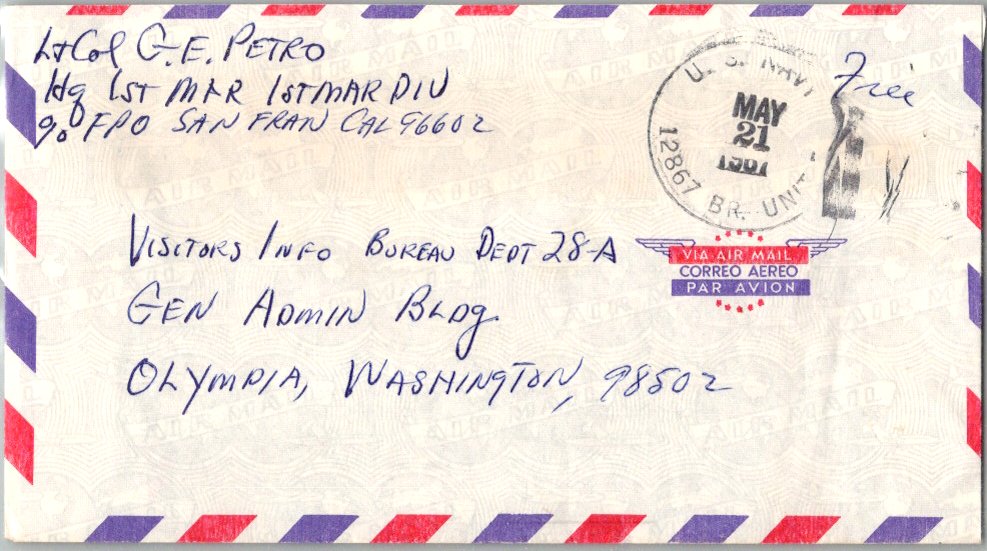 Lt Col G. E. PETRO
Hq 1ST MAR 1STMARDIV
c/o FPO SAN FRAN CAL 96602
Free
U. S. NAVY
MAY
21
1967
12867 BR. UNIT
VISITORS INFO BUREAU DEPT 28-A
GEN ADMIN BLDG.
OLYMPIA, WASHINGTON, 98502
VIA AIR MAIL
CORREO AEREO
PAR AVION